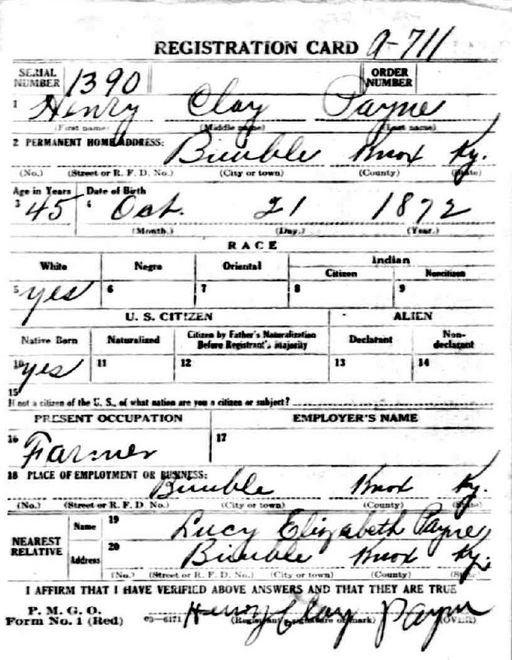 REGISTRATION CARD 9-711
SERIAL NUMBER 1390 ORDER NUMBER
1 Henry Clay Payne
(First name) (Middle name) (Last name)
2 PERMANENT HOME ADDRESS: Bimble Knox Ky.
(No.) (Street or R. F. D. No.) (City or town) (County) (State)
Age in Years Date of Birth
3 45 4 Oct. 21 1872
(Month.) (Day.) (Year.)
RACE
White Negro Oriental Indian
Citizen Noncitizen
5 yes 6 7 8 9
U. S. CITIZEN ALIEN
Native Born Naturalized Citizen by Father's Naturalization Before Registrant's Majority Declarant Non-declarant
10 yes 11 12 13 14
15
If not a citizen of the U. S., of what nation are you a citizen or subject?
PRESENT OCCUPATION EMPLOYER'S NAME
16 Farmer 17
18 PLACE OF EMPLOYMENT OR BUSINESS:
Bimble Knox Ky.
(No.) (Street or R. F. D. No.) (City or town) (County) (State)
NEAREST RELATIVE Name 19 Lucy Elizabeth Payne
Address 20 Bimble Knox Ky.
(No.) (Street or R. F. D. No.) (City or town) (County)
I AFFIRM THAT I HAVE VERIFIED ABOVE ANSWERS AND THAT THEY ARE TRUE
P. M. G. O.
Form No. 1 (Red) 03-6171 Henry Clay Payne
(Registrant's signature or mark) (OVER)